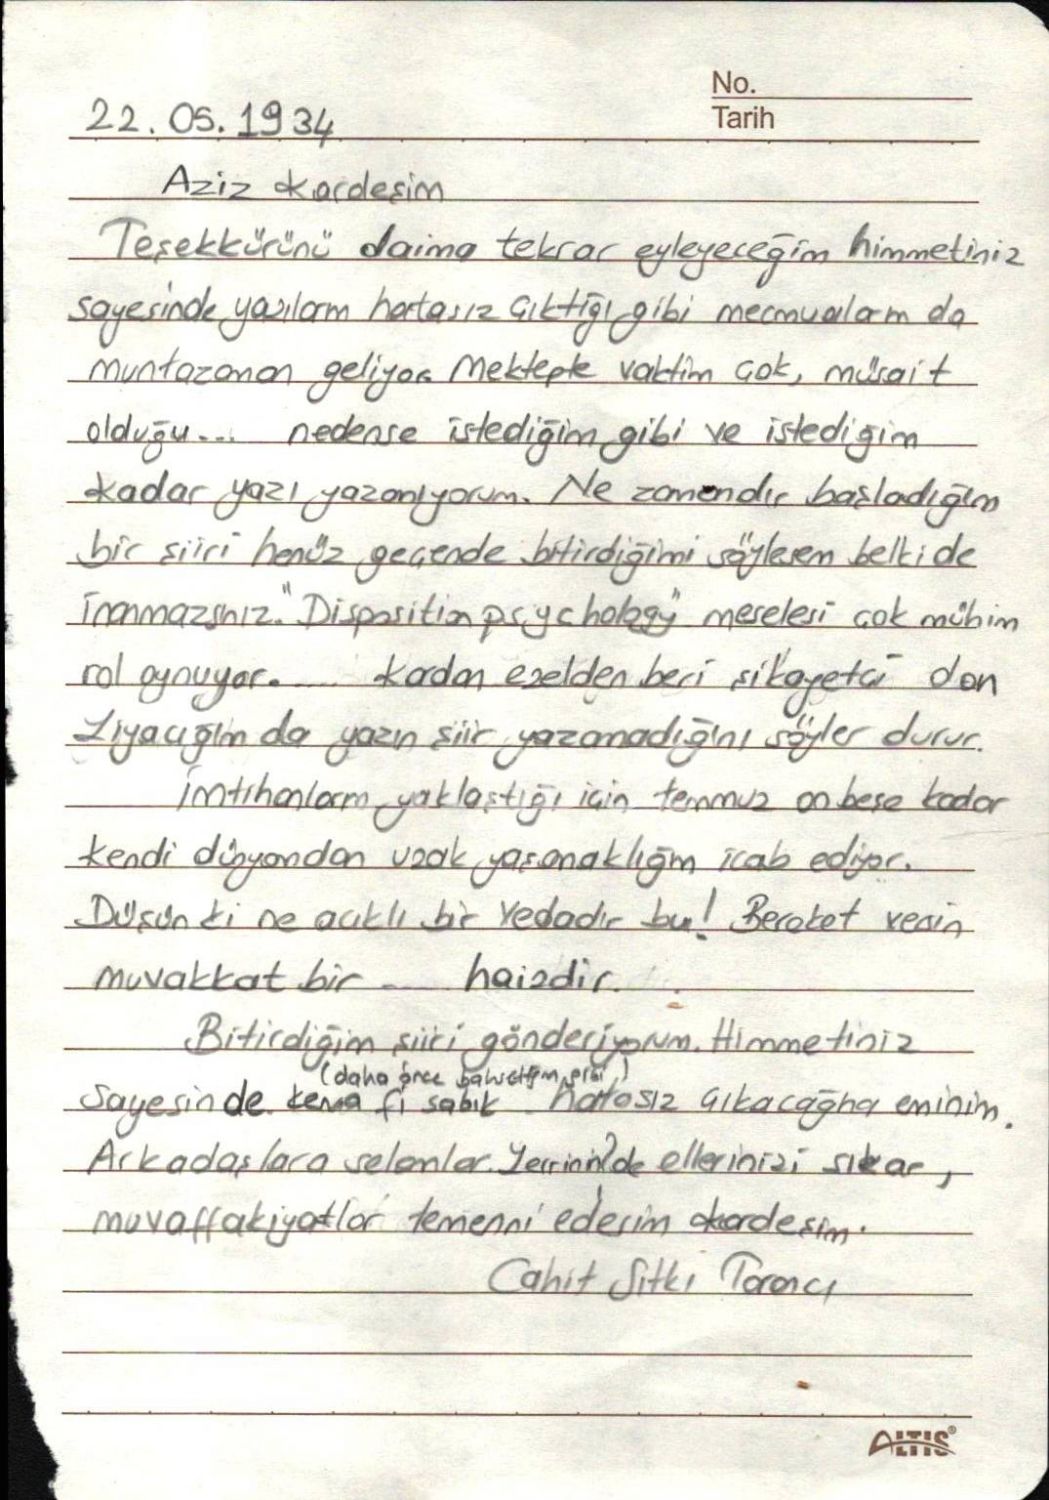 No.
Tarih
22.05.1934
Aziz Kardeşim
Teşekkürünü daima tekrar eyleyeceğim himmetiniz
sayesinde yazılarım hatasız çıktığı gibi mecmualarım da
muntazaman geliyor. Mektepte vaktim çok, müsait
olduğu... nedense istediğim gibi ve istediğim
kadar yazı yazamıyorum. Ne zamandır başladığım
bir şiiri henüz geçende bitirdiğimi söylesem belki de
inanmazsınız. "Disposition psychology" meselesi çok mühim
rol oynuyor. .... kadan ezelden beri şikayetçi dan
Ziyacığım da yazın şiir yazamadığını söyler durur.
İmtihanlarım yaklaştığı için temmuz on beşe kadar
kendi dünyamdan uzak yaşamaklığım icab ediyor.
Düşün ki ne acıklı bir vedadır bu! Bereket versin
muvakkat bir .... haizdir.
Bitirdiğim şiiri gönderiyorum. Himmetiniz
(daha önce bahsettiğim gibi)
sayesinde kema fi sabık hatasız çıkacağına eminim.
Arkadaşlara selamlar. ellerinizi sıkar,
muvaffakiyatlar temenni ederim kardeşim.
Cahit Sıtkı Tarancı
ALTIS®